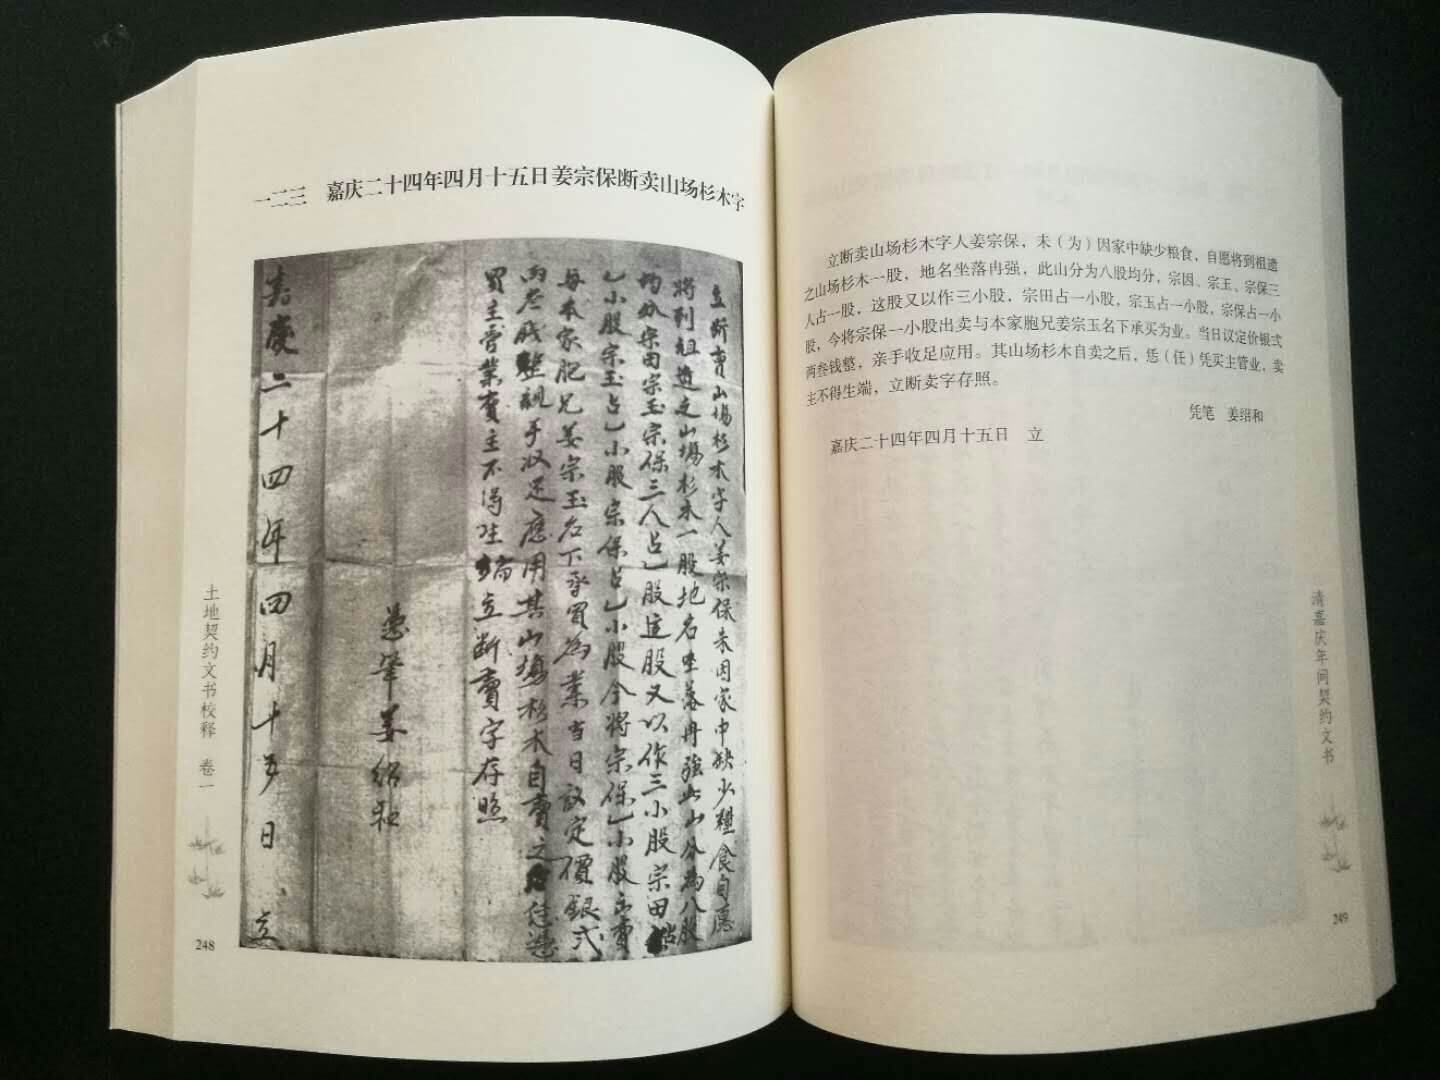 一二三 嘉庆二十四年四月十五日姜宗保断卖山场杉木字
立断賣山場杉木字人姜宗保未因家中缺少糧食自愿
將到祖遗之山場杉木一股地名坐落冉強此山分為八股
均分宗田宗玉宗保三人占一股這股又以作三小股宗田占
一小股宗玉占一小股宗保占一小股今將宗保一小股出賣
与本家胞兄姜宗玉名下承買為業当日议定價銀弍
両叁戔整親手収足應用其山場杉木自賣之后恁憑
買主管業賣主不得生端立断賣字存照
憑筆 姜绍和
嘉慶二十四年四月十五日 立
土地契约文书校释 卷一
248
立断卖山场杉木字人姜宗保，未（为）因家中缺少粮食，自愿将到祖遗
之山场杉木一股，地名坐落冉强，此山分为八股均分，宗因、宗玉、宗保三
人占一股，这股又以作三小股，宗田占一小股，宗玉占一小股，宗保占一小
股，今将宗保一小股出卖与本家胞兄姜宗玉名下承买为业。当日议定价银弍
两叁钱整，亲手收足应用。其山场杉木自卖之后，恁（任）凭买主管业，卖
主不得生端，立断卖字存照。
凭笔 姜绍和
嘉庆二十四年四月十五日 立
清嘉庆年间契约文书
249